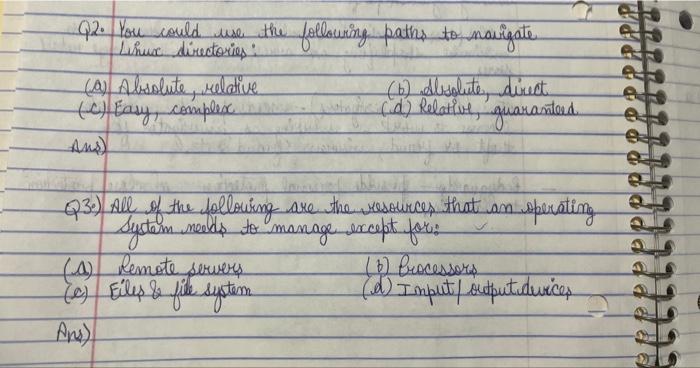 Q2. You could use the following paths to navigate
Linux directories:
(a) Absolute, relative (b) Absolute, direct
(c) Easy, complex (d) Relative, guaranteed
Ans)
Q3.) All of the following are the resources that an operating
System needs to manage except for:
(a) Remote servers (b) Processors
(c) Files & file system (d) Input/output devices
Ans)